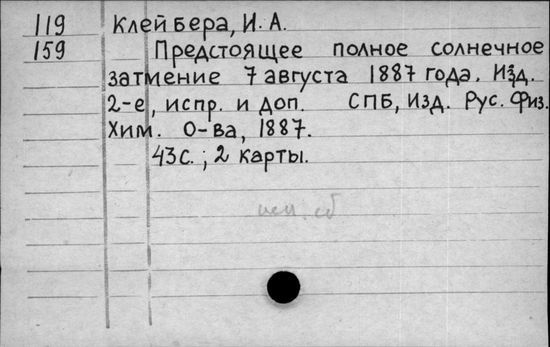 119 Клейбера, И. А.
159 Предстоящее полное солнечное
затмение 7 августа 1887 года. Изд.
2-е, испр. и доп. СПБ, Изд. Рус. Физ.
Хим. О-ва, 1887.
43с.; 2 карты.